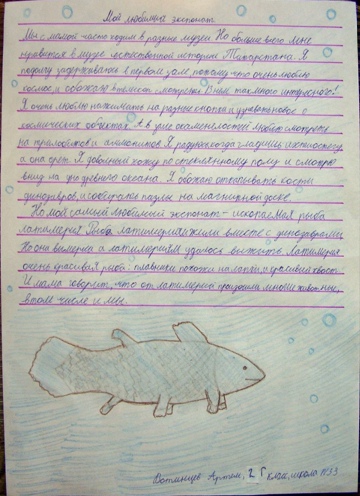 Мой любимый экспонат.
Мы с мамой часто ходим в разные музеи. Но больше всего мне
нравится в музее естественной истории Татарстана. Я
подолгу задерживаюсь в первом зале потому что очень люблю
космос и обожаю метеориты. В нём так много интересного!
Я очень люблю нажимать на разные кнопки и узнавать новое о
космических объектах. А в зале окаменелостей люблю смотреть
на трилобитов и аммонитов. Я радуюсь когда глажу
а она греет. Я довольный хожу по стеклянному полу и смотрю
вниз на дно древнего океана. Я обожаю откапывать кости
динозавров и собирать пазлы на магнитной доске.
Но мой самый любимый экспонат - ископаемая рыба
латимерия. Рыба латимерия жили вместе с динозаврами.
Но они вымерли а латимериям удалось выжить. Латимерия
очень красивая рыба: плавники похожи на лапы и красивый хвост.
И мама говорит, что от латимерий произошли многие животные,
в том числе и мы.
Артём, 2 Г класс, школа №33